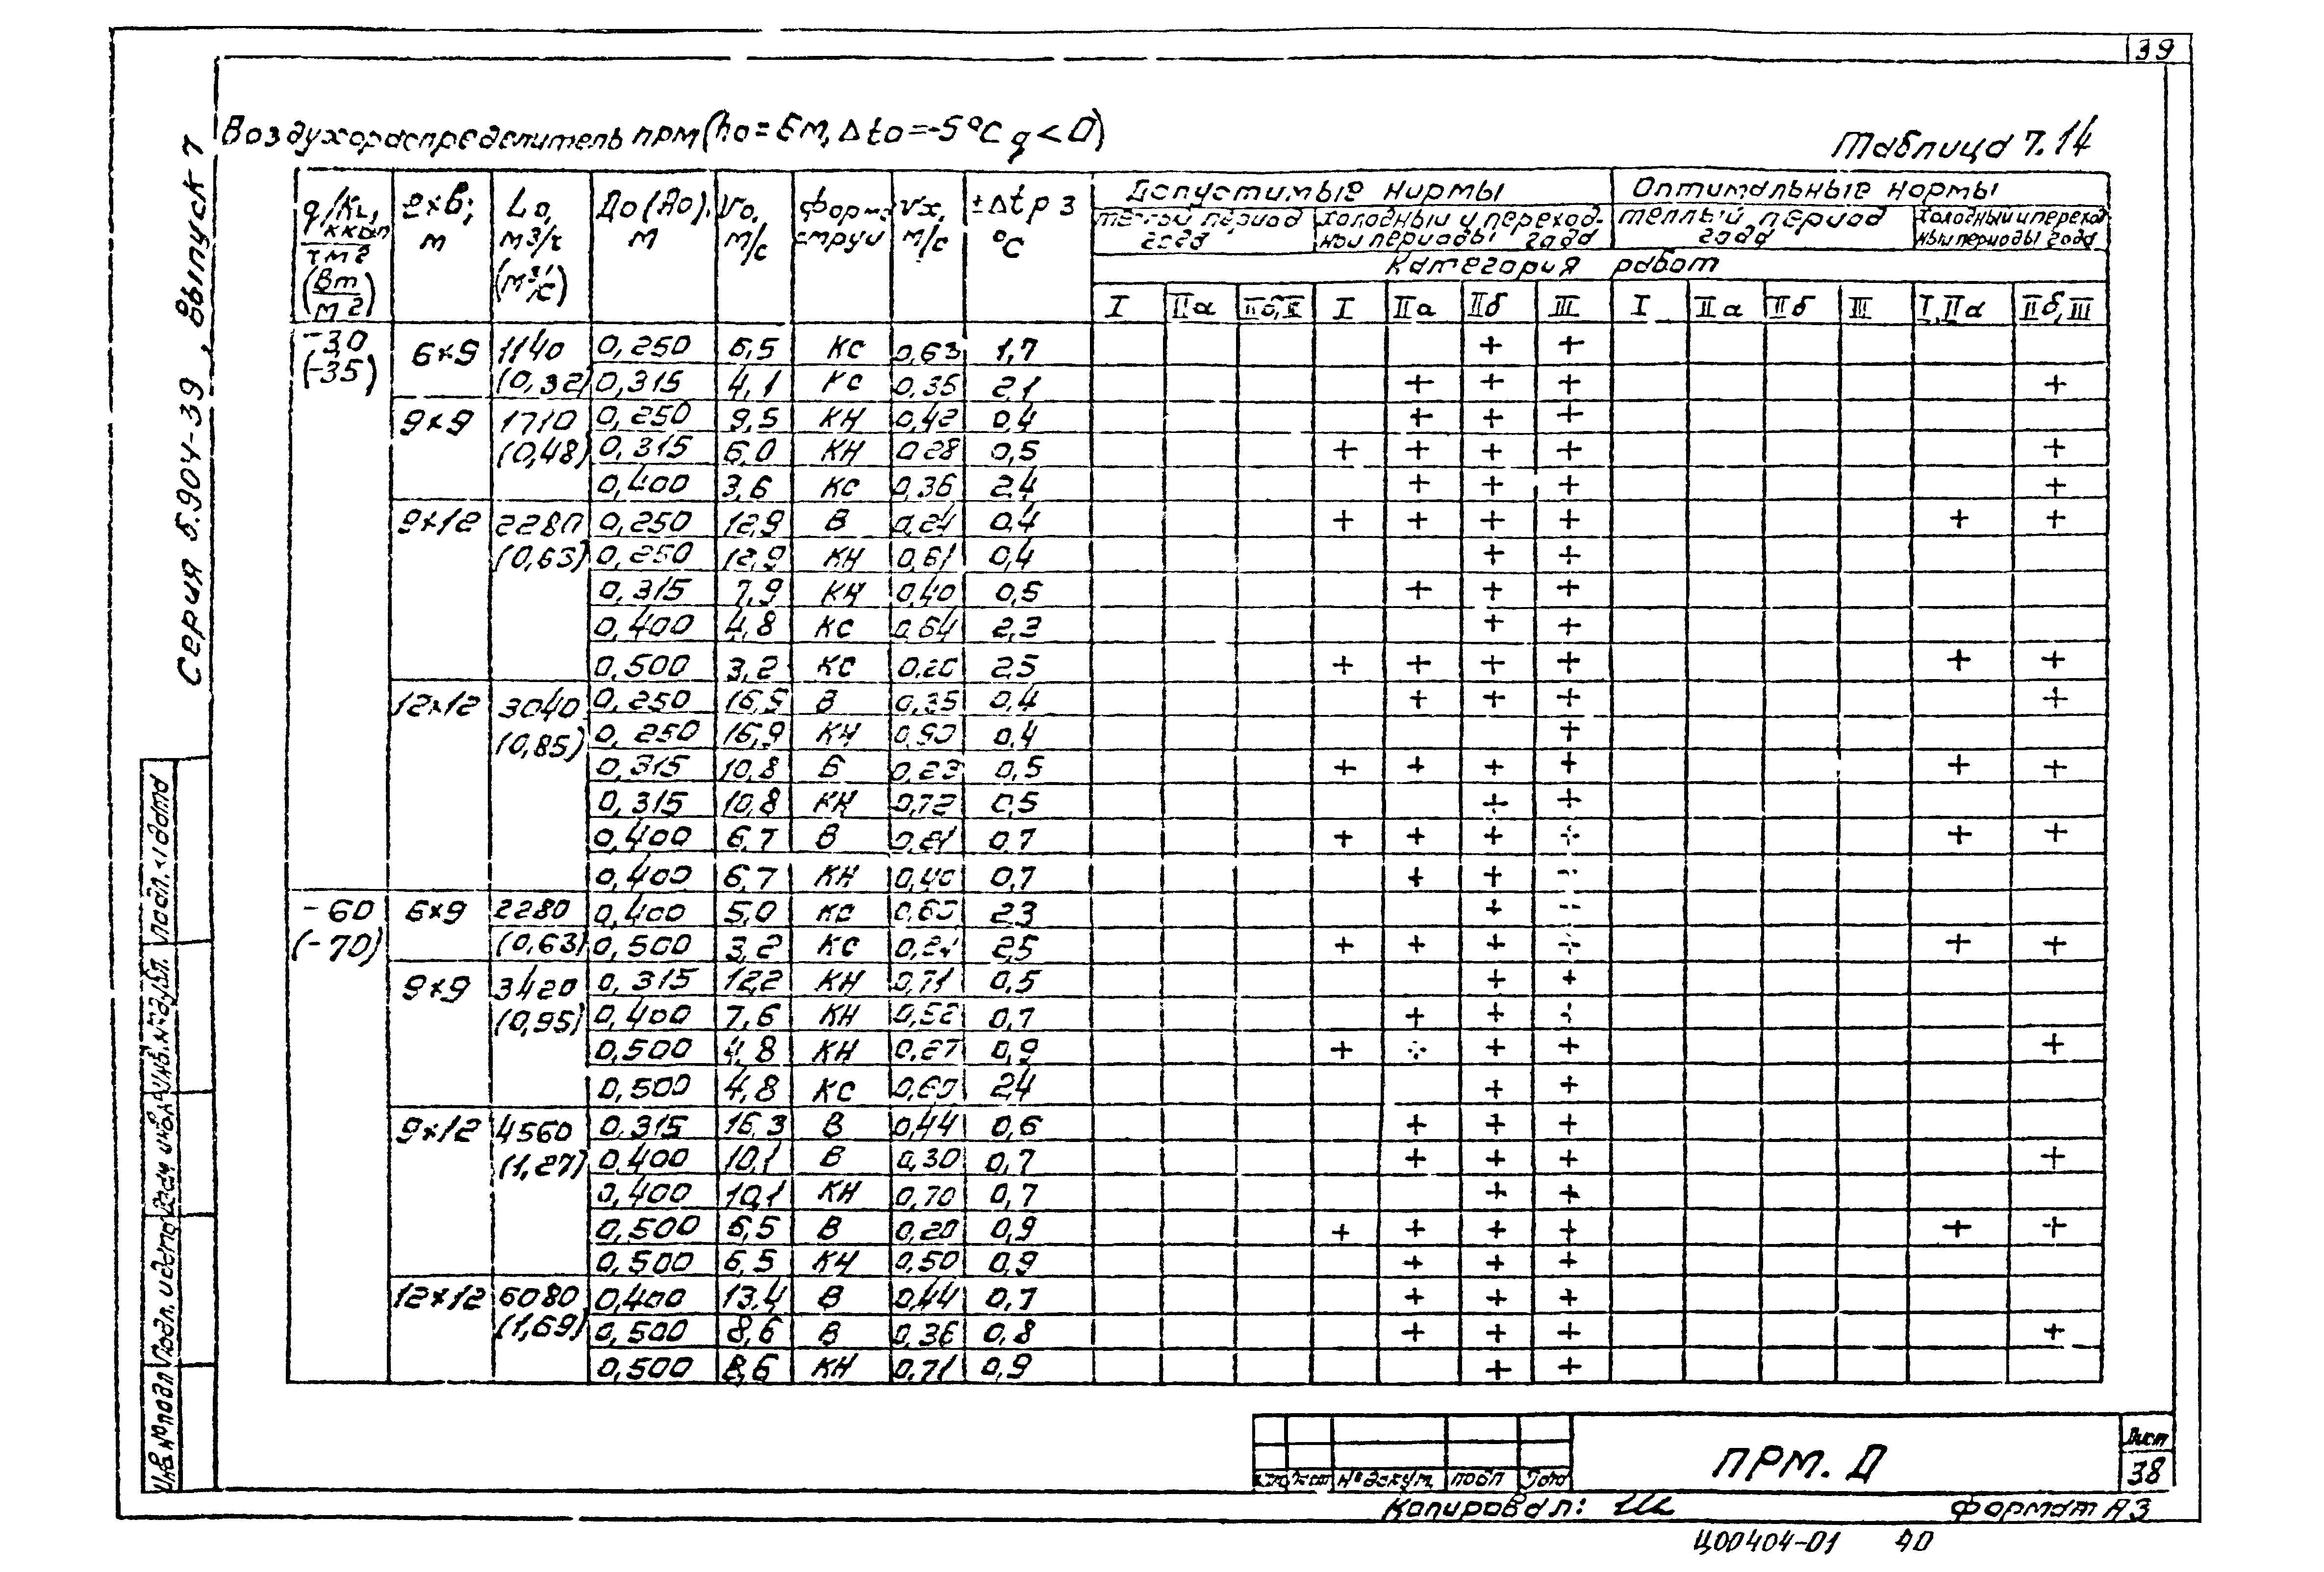 39
Воздухораспределитель ПРМ (ho = 6м, Δto = -5°C q < 0)
Таблица 7.14
Серия 5.904-39, выпуск 7
q/КL, ккал/чм² (Вт/м²) | ℓ×в; м | Lo, м3/ч (м3/с) | До(Ао), м | Vo, м/с | Форма струи | Vx, м/с | ±Δtрз °C | Допустимые нормы | Оптимальные нормы
теплый период года | холодный и переходной периоды года | теплый период года | холодный и переходный периоды года
Категория работ
I | IIа | IIб, III | I | IIа | IIб | III | I | IIа | IIб | III | I, IIа | IIб, III
-30 (-35) | 6×9 | 1140 (0,32) | 0,250 | 6,5 | КС | 0,63 | 1,7 | + | +
0,315 | 4,1 | КС | 0,35 | 2,1 | + | + | + | +
9×9 | 1710 (0,48) | 0,250 | 9,5 | КН | 0,42 | 0,4 | + | + | +
0,315 | 6,0 | КН | 0,28 | 0,5 | + | + | + | + | +
0,400 | 3,6 | КС | 0,36 | 2,4 | + | + | + | +
9×12 | 2280 (0,63) | 0,250 | 12,9 | В | 0,24 | 0,4 | + | + | + | + | + | +
0,250 | 12,9 | КН | 0,61 | 0,4 | + | +
0,315 | 7,9 | КН | 0,40 | 0,5 | + | + | +
0,400 | 4,8 | КС | 0,64 | 2,3 | + | +
0,500 | 3,2 | КС | 0,20 | 2,5 | + | + | + | + | + | +
12×12 | 3040 (0,85) | 0,250 | 16,9 | В | 0,35 | 0,4 | + | + | + | +
0,250 | 16,9 | КН | 0,4 | +
0,315 | 10,8 | В | 0,23 | 0,5 | + | + | + | + | + | +
0,315 | 10,8 | КН | 0,72 | 0,5 | + | +
0,400 | 6,7 | В | 0,7 | + | + | + | + | + | +
0,400 | 6,7 | КН | 0,40 | 0,7 | + | + | +
-60 (-70) | 6×9 | 2280 (0,63) | 0,400 | 5,0 | КС | 2,3 | + | +
0,500 | 3,2 | КС | 2,5 | + | + | + | + | + | +
9×9 | 3420 (0,95) | 0,315 | 12,2 | КН | 0,71 | 0,5 | + | +
0,400 | 7,6 | КН | 0,52 | 0,7 | + | + | +
0,500 | 4,8 | КН | 0,27 | 0,9 | + | + | + | + | +
0,500 | 4,8 | КС | 0,60 | 2,4 | + | +
9×12 | 4560 (1,27) | 0,315 | 16,3 | В | 0,44 | 0,6 | + | + | +
0,400 | 10,1 | В | 0,30 | 0,7 | + | + | + | +
0,400 | 10,1 | КН | 0,70 | 0,7 | + | +
0,500 | 6,5 | В | 0,20 | 0,9 | + | + | + | + | + | +
0,500 | 6,5 | КН | 0,50 | 0,9 | + | + | +
12×12 | 6080 (1,69) | 0,400 | 13,4 | В | 0,44 | 0,7 | + | + | +
0,500 | 8,6 | В | 0,36 | 0,8 | + | + | + | +
0,500 | 8,6 | КН | 0,71 | 0,9 | + | +
Инв.№подл | Подл. и дата | Взам инв.№ | Инв.№дубл. | Подл. и дата
Лист | №докум. | подп | Дата
ПРМ. Д
Лист
38
Копировал:
Формат А3
Ц00404-01 40